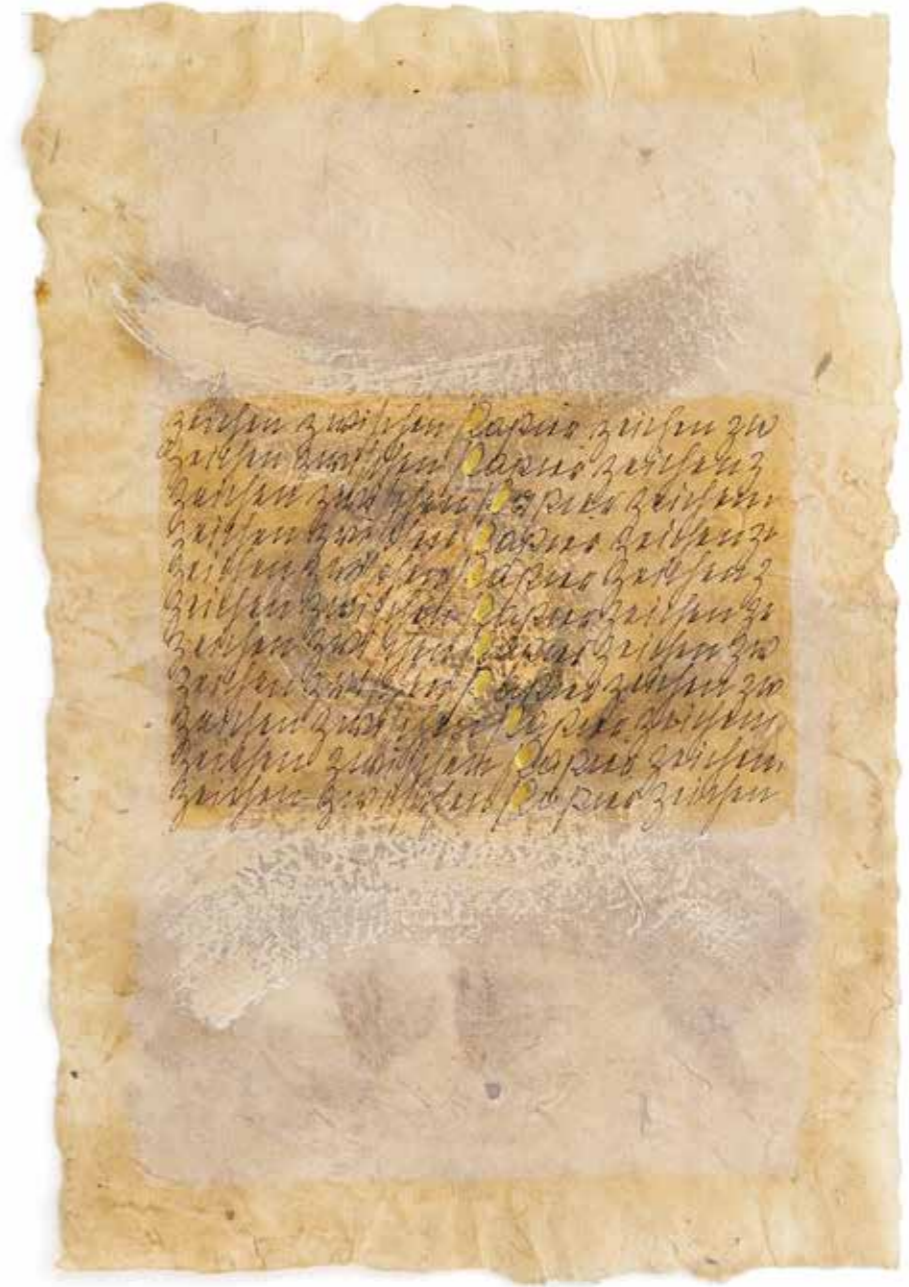 zeichen zwischen Papier zeichen zw
zeichen zwischen Papier zeichen z
zeichen zwischen Papier zeichen
zeichen zwischen Papier zeichen z
zeichen zwischen Papier zeichen z
zeichen zwischen Papier zeichen z
zeichen zwischen Papier zeichen zw
zeichen zwischen Papier zeichen zw
zeichen zwischen Papier zeichen
zeichen zwischen Papier zeichen
zeichen zwischen Papier zeichen